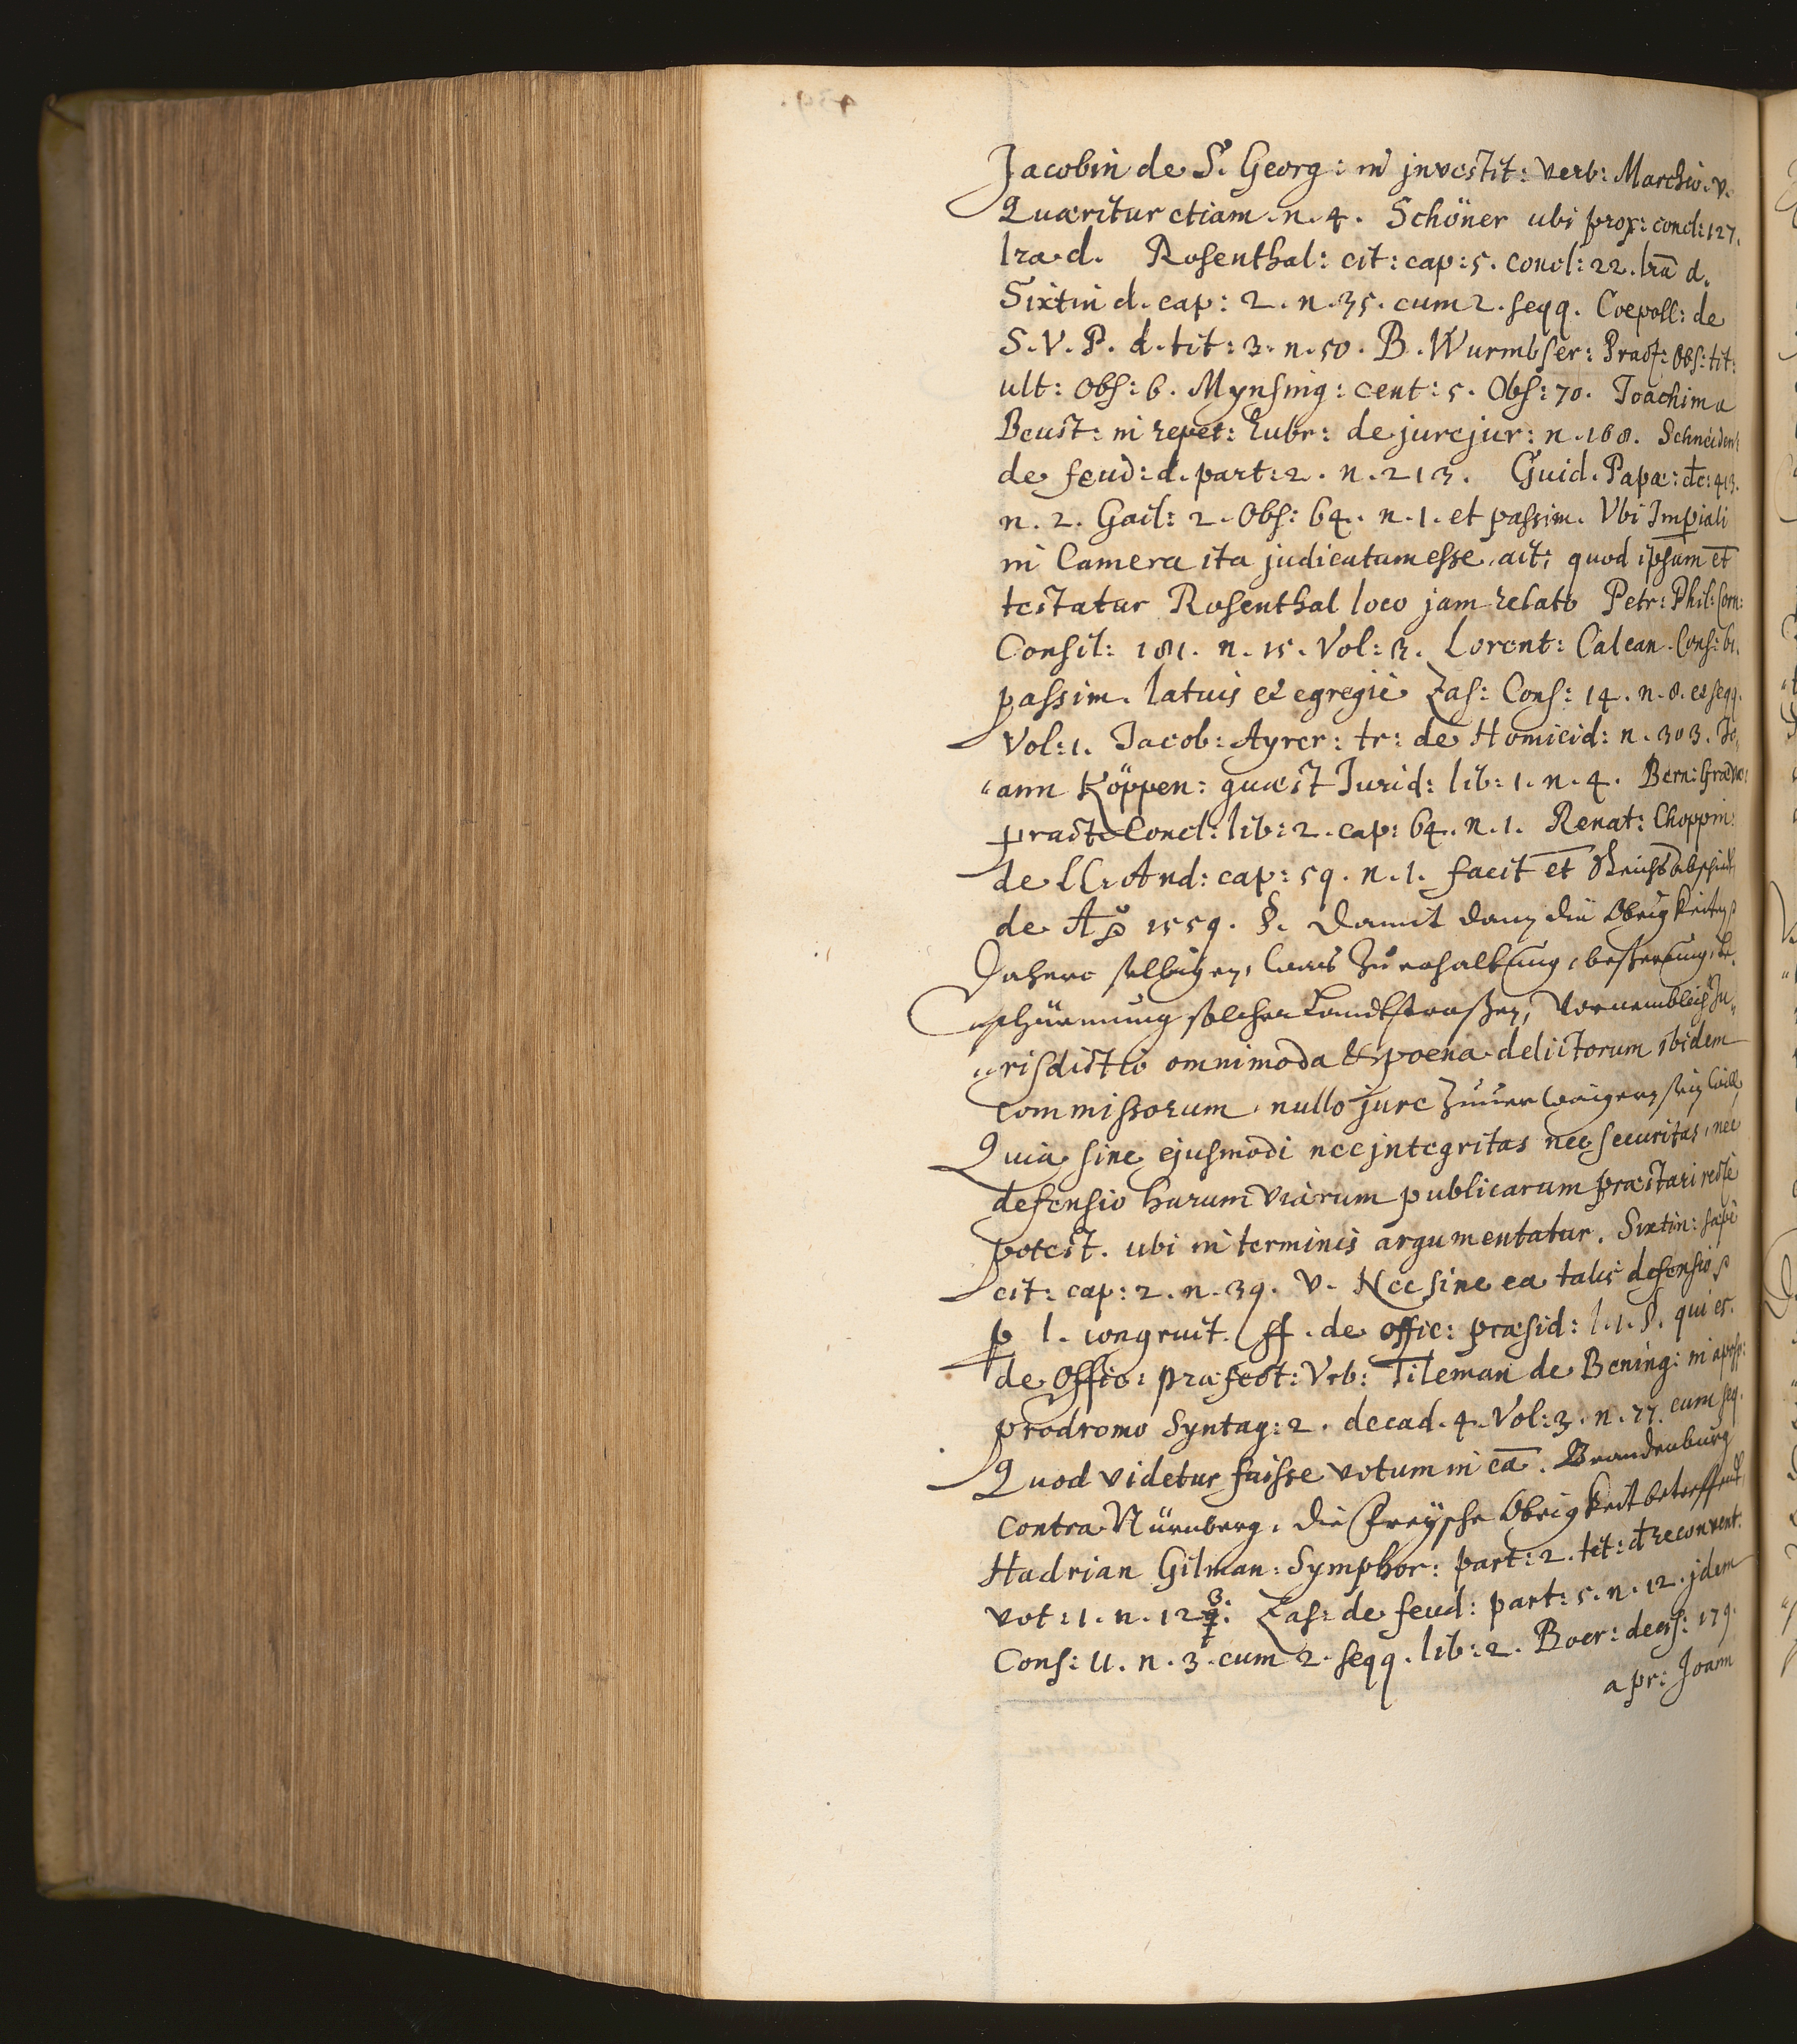 Jacobin de S. Georg: in jnvestit: verb: Marchio. v.
Quæritur etiam. n. 4. Schöner ubi prox: concl: 127.
lra. d. Rosenthal: cit: cap: 5. concl: 22. lrã d.
Sixtin d. cap: 2. n. 35. cum 2. seqq. Coepoll: de
S. V. P. d. tit: 3. n. 50. B. Wurmbser: Pract: Obs: tit:
ult: Obs: 6. Mynsing: cent: 5. Obs: 70. Joachim a
Beust: in repet: Rubr: de jurejur: n. 168. Schneidew
de feud: d. part: 2. n. 213. Guid. Papæ: dec: 413.
n. 2. Gail: 2. Obs: 64. n. 1. et passim. Vbi Impiali
in Camera ita judicatum esse ait; quod ipsum et
testatur Rosenthal loco jam relato Petr: Phil: Corn:
Consil: 181. n. 15. Vol: 3. Lorent: Calcan. Cons: 61.
passim. latius et egregiè Zas: Cons: 14. n. 8. et seqq.
Vol: 1. Jacob: Ayrer: tr: de Homicid: n. 303. Jo,
"ann Köppen: quæst Jurid: lib: 1. n. 4. Bern: Græven:
pract: Concl: lib: 2. cap: 64. n. 1. Renat: Choppin:
de LL. And: cap: 59. n. 1. facit et Reichs Abschiedt
de Aõ 1559. §. Damit dann die Obrigkeiten p
Dahero selbigen, waß zu erhaltung, besserung, be,
"schürmung solcher Landtstrassen, vornemblich Ju,
"risdictio omnimoda & poena delictorum ibidem
commissorum nullo jure zuuerwaigern sein will,
Quia sine ejusmodi nec jntegritas nec securitas, nec
defensio harum viarum publicarum præstari rectè
potest. ubi in terminis argumentatur. Sixtin: sæpè
cit: cap: 2. n. 39. v. Nec sine ea talis defensio p
p l. congruit. ff. de offic: præsid: l. 1. §. qui es.
de Offic: præfect: Vrb: Tileman de Bening: in
prodromo Syntag: 2. decad. 4. Vol: 3. n. 77. cum seq.
Quod videtur fuisse votum in cã. Brandenburg
contra Nürnberg, die Freysche Obrigkeit betreffend,
Hadrian Gilman: Symphor: part: 2. tit: d reconvent.
vot: 1. n. 123. Zas: de feud: part: 5. n. 12. jdem
Cons: 11. n. 3. cum 2. seqq. lib: 2. Boer: decis: 179.
a pr: Joann